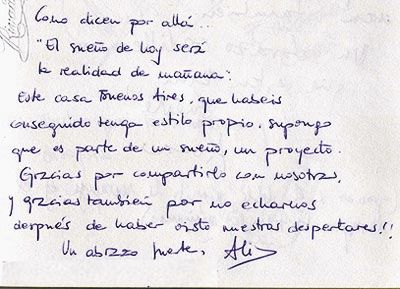 Como dicen por allá...
"El sueño de hoy será
la realidad de mañana".
Este casa Buenos Aires, que habeis
conseguido tenga estilo propio, supongo
que es parte de un sueño, un proyecto.
Gracias por compartirlo con nosotras,
y gracias también por no echarnos
después de haber visto nuestros despertares!!
Un abrazo fuerte, Ali